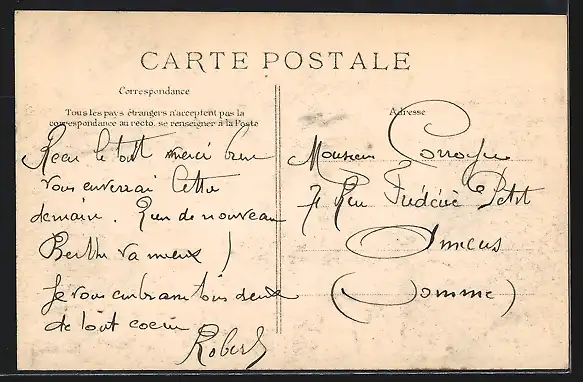 CARTE POSTALE
Correspondance
Tous les pays étrangers n'acceptent pas la
correspondance au recto, se renseigner à la Poste
Adresse
Recu le tout merci bien
vous enverrai lettre
demain. Rien de nouveau
Berthe va mieux !
Je vous embrasse tous deux
de tout coeur
Robert
Monsieur
7 Rue Frédéric Petit
Amiens
(Somme)